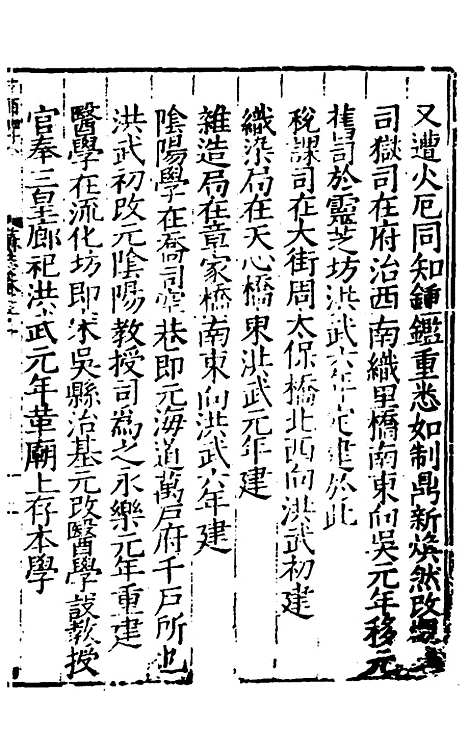 又遭火厄同知鍾鑑重悉如制鼎新煥然改觀
司獄司在府治西南織里橋南東向吳元年移元
舊司於靈芝坊洪武六年定建於此
稅課司在大街周太保橋北西向洪武初建
織染局在天心橋東洪武元年建
雜造局在章家橋南東向洪武六年建
陰陽學在喬司空巷即元海道萬戶府千戶所也
洪武初改元陰陽教授司為之永樂元年重建
醫學在流化坊即宋吳縣治基元改醫學設教授
官奉三皇廊祀洪武元年革廟上存本學